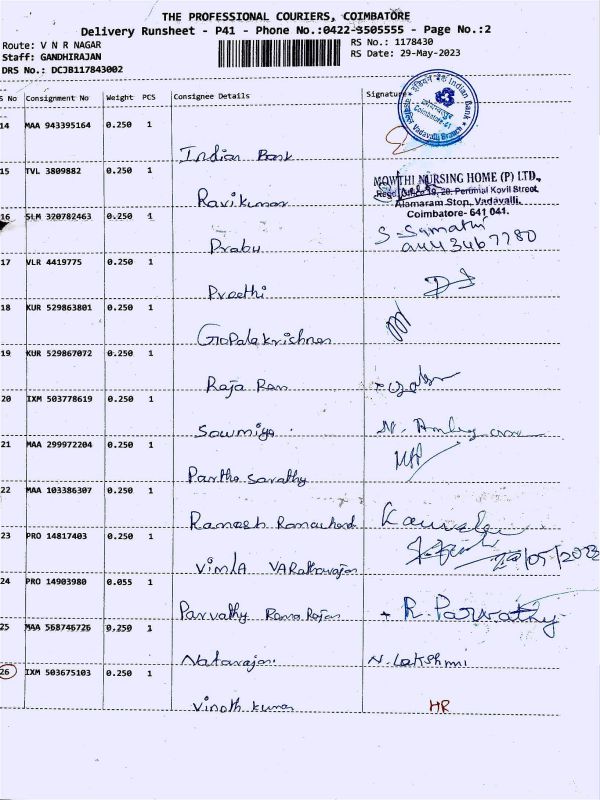 THE PROFESSIONAL COURIERS, COIMBATORE
Delivery Runsheet - P41 - Phone No.:0422-3505555 - Page No.:2
Route: V N R NAGAR
RS No.: 1178430
Staff: GANDHIRAJAN
RS Date: 29-May-2023
DRS No.: DCJB117843002
S No Consignment No Weight PCS Consignee Details Signature
14 MAA 943395164 0.250 1
Indian Bank
Indian Bank
Coimbatore-41
Vadavalli Branch
15 TVL 3809882 0.250 1
Ravikumar
MOWTHI NURSING HOME (P) LTD.,
Regd. Office 19, 20, Perumal Kovil Street,
Alamaram Stop, Vadavalli,
Coimbatore- 641 041.
16 SLM 320782463 0.250 1
Prabu
S-Sumathi
17 VLR 4419775 0.250 1
Preethi
18 KUR 529863801 0.250 1
Gopalakrishnan
19 KUR 529867072 0.250 1
Raja Ram
20 IXM 503778619 0.250 1
Sowmiya
21 MAA 299972204 0.250 1
Partha Sarathy
22 MAA 103386307 0.250 1
Ramesh Ramachand
23 PRO 14817403 0.250 1
Vimla Varatharajan
24 PRO 14903980 0.055 1
Parvathy Rama Rajan
R. Parvathy
25 MAA 568746726 0.250 1
Natarajan
N. Lakshmi
26 IXM 503675103 0.250 1
Vinoth kumar
HR